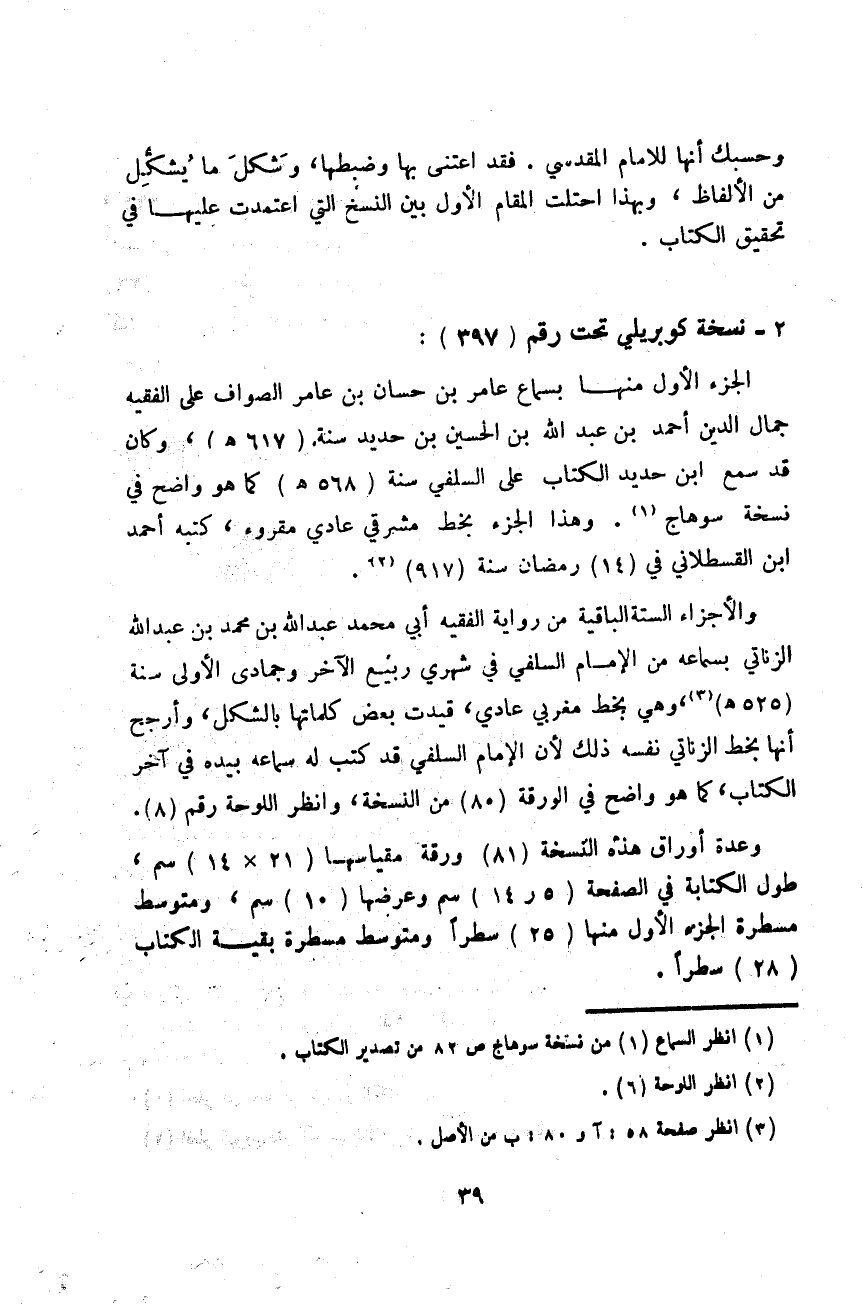 وحسبك أنها للامام المقدسي . فقد اعتنى بها وضبطها، وَشَكلَ ما يُشكِّل
من الألفاظ ، وبهذا احتلت المقام الأول بين النسخ التي اعتمدت عليهـــا في
تحقيق الكتاب .
٢ - نسخة كوبريلي تحت رقم ( ٣٩٧ ) :
الجزء الأول منهـــا بسماع عامر بن حسان بن عامر الصواف على الفقيه
جمال الدين أحمد بن عبد الله بن الحسين بن حديد سنة ( ٦١٧ ه ) ، وكان
قد سمع ابن حديد الكتاب على السلفي سنة ( ٥٦٨ ه ) كما هو واضح في
نسخة سوهاج (١) . وهذا الجزء بخط مشرقي عادي مقروء ، كتبه أحمد
ابن القسطلاني في (١٤) رمضان سنة (٩١٧) (٢) .
والأجزاء الستة الباقية من رواية الفقيه أبي محمد عبدالله بن محمد بن عبدالله
الزناتي بسماعه من الإمـــام السلفي في شهري ربيع الآخر وجمادى الأولى سنة
(٥٢٥ ه)(٣)، وهي بخط مغربي عادي، قيدت بعض كلماتها بالشكل، وأرجح
أنها بخط الزناتي نفسه ذلك لأن الإمام السلفي قد كتب له سماعه بيده في آخر
الكتاب، كما هو واضح في الورقة (٨٠) من النسخة، وانظر اللوحة رقم (٨).
وعدة أوراق هذه النسخة (٨١) ورقة مقياسهـا ( ٢١ × ١٤ ) سم ،
طول الكتابة في الصفحة ( ٥ر١٤ ) سم وعرضها ( ١٠ ) سم ، ومتوسط
مسطرة الجزء الأول منها ( ٢٥ ) سطراً ومتوسط مسطرة بقيـــة الكتاب
( ٢٨ ) سطراً .
(١) انظر السماع (١) من نسخة سوهاج ص ٨٢ من تصدير الكتاب .
(٢) انظر اللوحة (٦) .
(٣) انظر صفحة ٥٨ : آ و ٨٠ : ب من الأصل .
٣٩